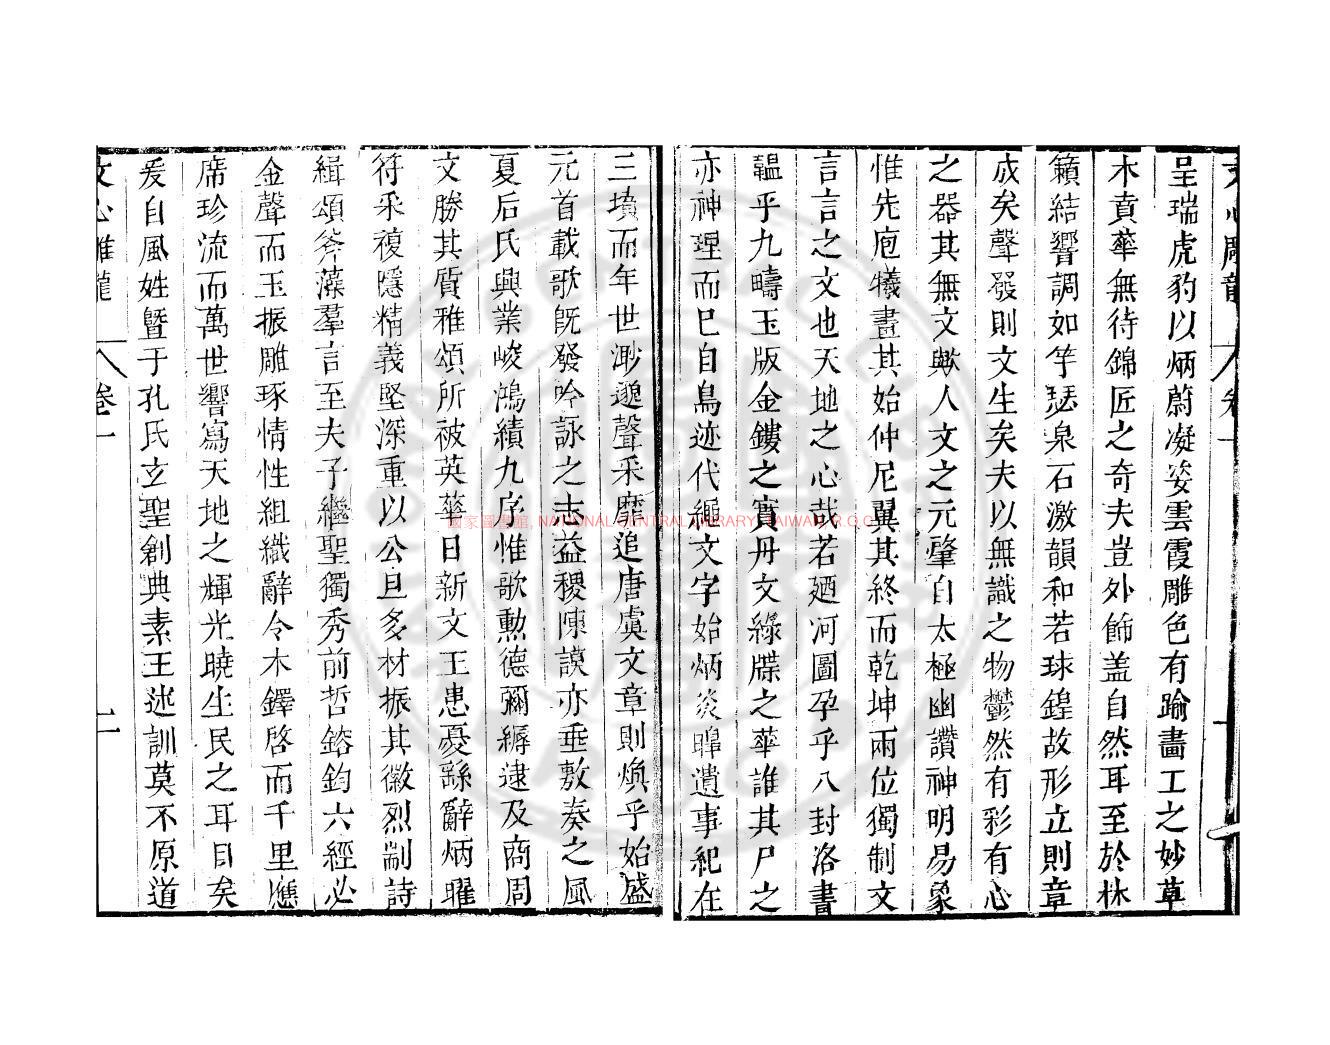 文心雕龍 卷一
呈瑞虎豹以炳蔚凝姿雲霞雕色有踰畵工之妙草
木賁華無待錦匠之奇夫豈外飾盖自然耳至於林
籟結響調如竽瑟泉石激韻和若球鍠故形立則章
成矣聲發則文生矣夫以無識之物鬱然有彩有心
之器其無文歟人文之元肇自太極幽讚神明易象
惟先庖犧畫其始仲尼翼其終而乾坤兩位獨制文
言言之文也天地之心哉若廼河圖孕乎八封洛書
韞乎九疇玉版金鏤之實丹文綠牒之華誰其尸之
亦神理而巳自鳥迹代繩文字始炳炎皥遺事紀在
三墳而年世渺邈聲采靡追唐虞文章則煥乎始盛
元首載歌旣發吟詠之志益稷陳謨亦垂敷奏之風
夏后氏興業峻鴻績九序惟歌勲德彌縟逮及商周
文勝其質雅頌所被英華日新文王患憂繇辭炳曜
符采複隱精義堅深重以公旦多材振其徽烈制詩
緝頌斧藻羣言至夫子繼聖獨秀前哲鎔鈞六經必
金聲而玉振雕琢情性組織辭令木鐸啓而千里應
席珍流而萬世響寫天地之輝光曉生民之耳目矣
爰自風姓曁于孔氏玄聖創典素王述訓莫不原道
文心雕龍 卷一 二
國家圖書館, NATIONAL CENTRAL LIBRARY, TAIWAN, R.O.C